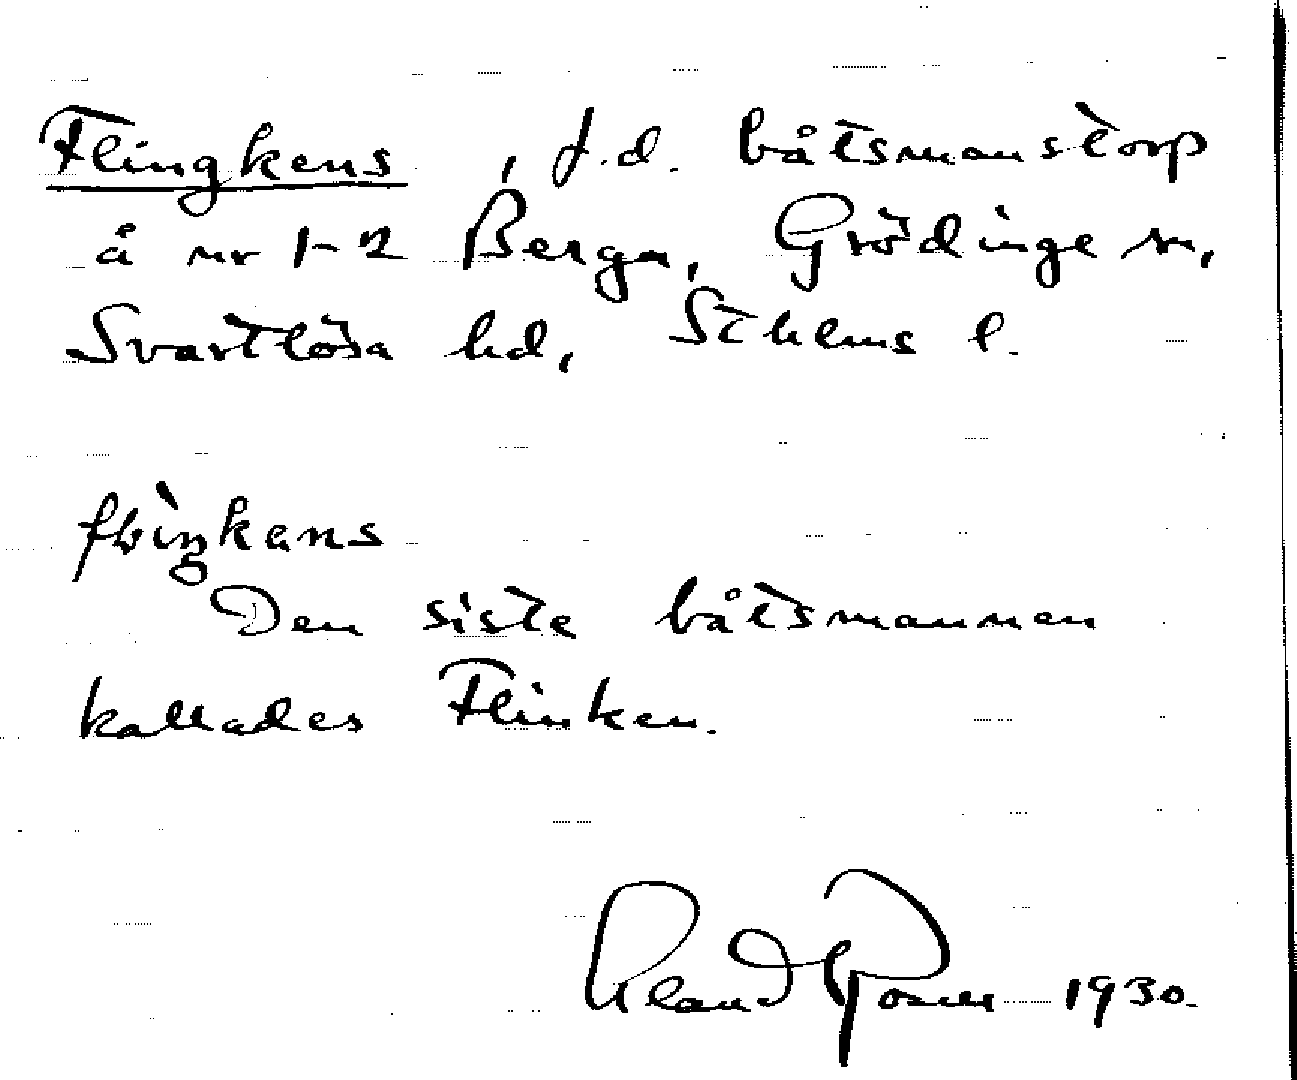 Flingkens, f.d. båtsmanstorp
å nr 1-2 Berga, Grödinge sn,
Svartlösa hd, Sthlms l.
Den siste båtsmannen
kallades Flinken.
1930.